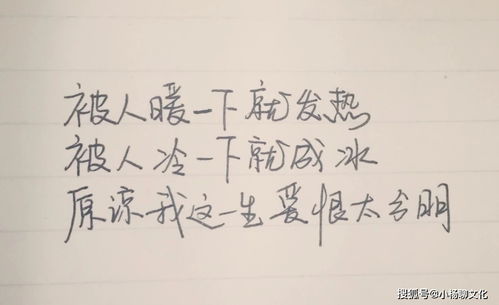 被人暖一下就发热
被人冷一下就成冰
原谅我这一生爱恨太分明
搜狐号@小杨聊文化